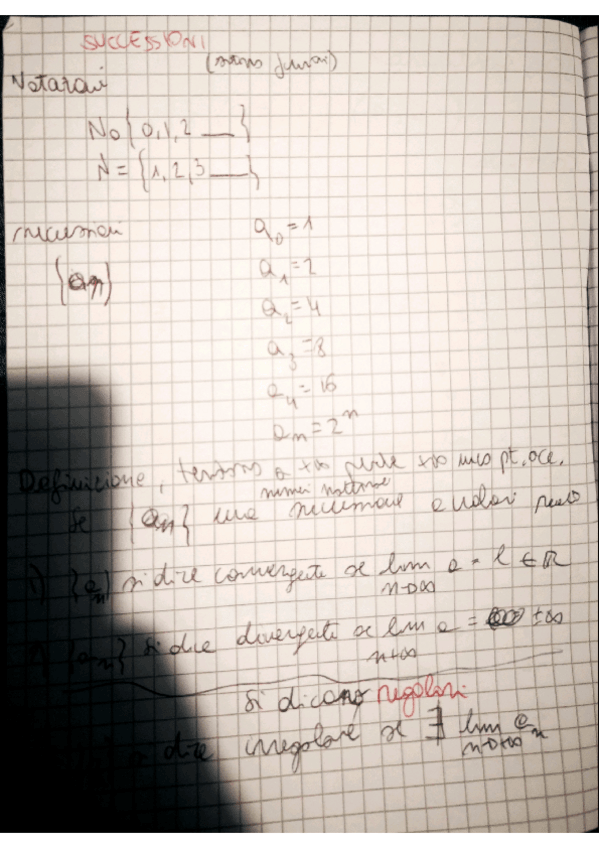 SUCCESSIONI
(sono funzioni)
Notazioni
N₀ {0,1,2 __}
N = {1,2,3 __}
successioni
{aₙ}
a₀ = 1
a₁ = 2
a₂ = 4
a₃ = 8
a₄ = 16
aₙ = 2ⁿ
Definizione, tendono a +∞ +∞ pt. acc.
numeri naturali
Se {aₙ} una successione a valori
1) {aₙ} si dice convergente se lim a = l ∈ ℝ
n→∞
{aₙ} si dice divergente se lim a = ±∞
n→∞
si dicono regolari
dice irregolare se ∄ lim aₙ
n→+∞